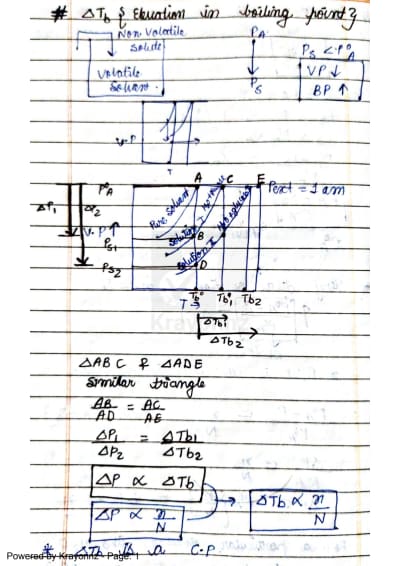 # ΔTb & Elevation in boiling point &
Non Volatile
Solute
Volatile
Solvent.
PA
PS
PS < P°A
VP ↓
BP ↑
V.P
T
A C E
P°A
Pext = 1 am
ΔP1
ΔP2
V.P ↑
PS1
PS2
Pure solvent
Solution I
Solution II
B
D
T → Tb° Tb1 Tb2
ΔTb1
ΔTb2
ΔABC & ΔADE
Similar triangle
AB/AD = AC/AE
ΔP1/ΔP2 = ΔTb1/ΔTb2
ΔP ∝ ΔTb
ΔP ∝ n/N
→ ΔTb ∝ n/N
* ΔTb is a C.P
Powered by Krayonnz - Page: 1